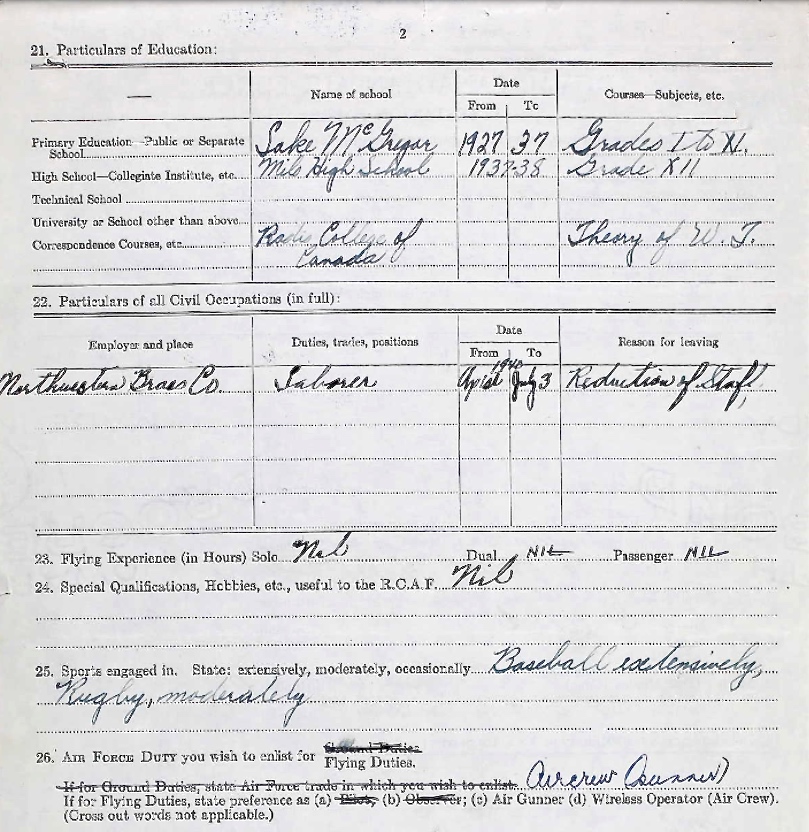 2
21. Particulars of Education:
Name of school
Date
From To
Courses—Subjects, etc.
Primary Education—Public or Separate
School Lake McGregor 1927 37 Grades I to XI.
High School—Collegiate Institute, etc. Milo High School 1937-38 Grade XII
Technical School
University or School other than above
Correspondence Courses, etc. Radio College of Theory of W. T.
Canada
22. Particulars of all Civil Occupations (in full):
Employer and place
Duties, trades, positions
Date
From To
Reason for leaving
1940
Northwestern Brass Co. Laborer July 3 Reduction of Staff
23. Flying Experience (in Hours) Solo Nil Dual NIL Passenger NIL
24. Special Qualifications, Hobbies, etc., useful to the R.C.A.F. Nil
25. Sports engaged in. State: extensively, moderately, occasionally Baseball extensively,
Rugby, moderately
26. AIR FORCE DUTY you wish to enlist for
Ground Duties
Flying Duties.
If for Ground Duties, state Air Force trade in which you wish to enlist. Aircrew (Gunner)
If for Flying Duties, state preference as (a) Pilot; (b) Observer; (c) Air Gunner (d) Wireless Operator (Air Crew).
(Cross out words not applicable.)